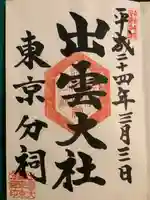 平成二十四年三月三日
出雲大社
東京分祠